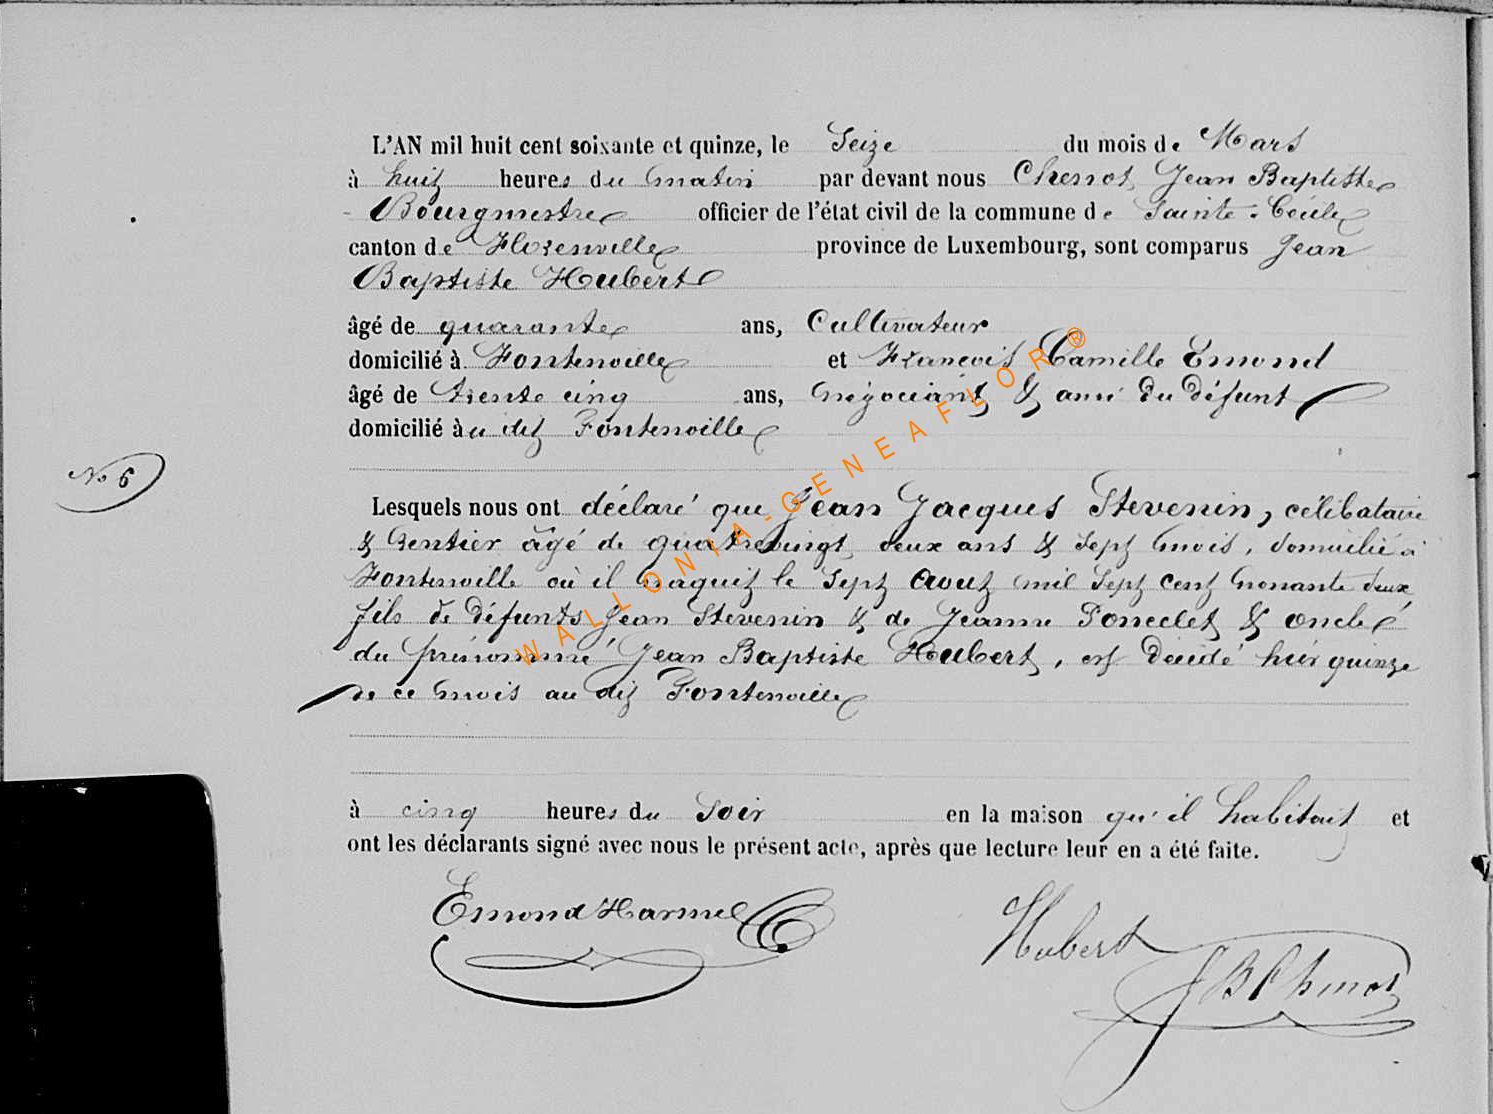 L'AN mil huit cent soixante et quinze, le Seize du mois de Mars
à huit heures du matin par devant nous Chenot Jean Baptiste
Bourgmestre officier de l'état civil de la commune de Sainte-Cécile
canton de Florenville province de Luxembourg, sont comparus Jean
Baptiste Hubert
âgé de quarante ans, Cultivateur
domicilié à Fontenoille et François Camille Emond
âgé de trente cinq ans, négociant & ami du défunt
domicilié au dit Fontenoille
No 6
Lesquels nous ont déclaré que Jean Jacques Stevenin, célibataire
& Rentier âgé de quatrevingt deux ans & sept mois, domicilié à
Fontenoille où il naquit le sept Aout mil sept cent nonante deux
fils de défunts Jean Stevenin & de Jeanne Poncelet & oncle
du prénommé Jean Baptiste Hubert, est décédé hier quinze
de ce mois au dit Fontenoille
à cinq heures du soir en la maison qu'il habitait et
ont les déclarants signé avec nous le présent acte, après que lecture leur en a été faite.
Emond Harmel
Hubert
JB Chenot
WALLONIA-GENEAFLOR®